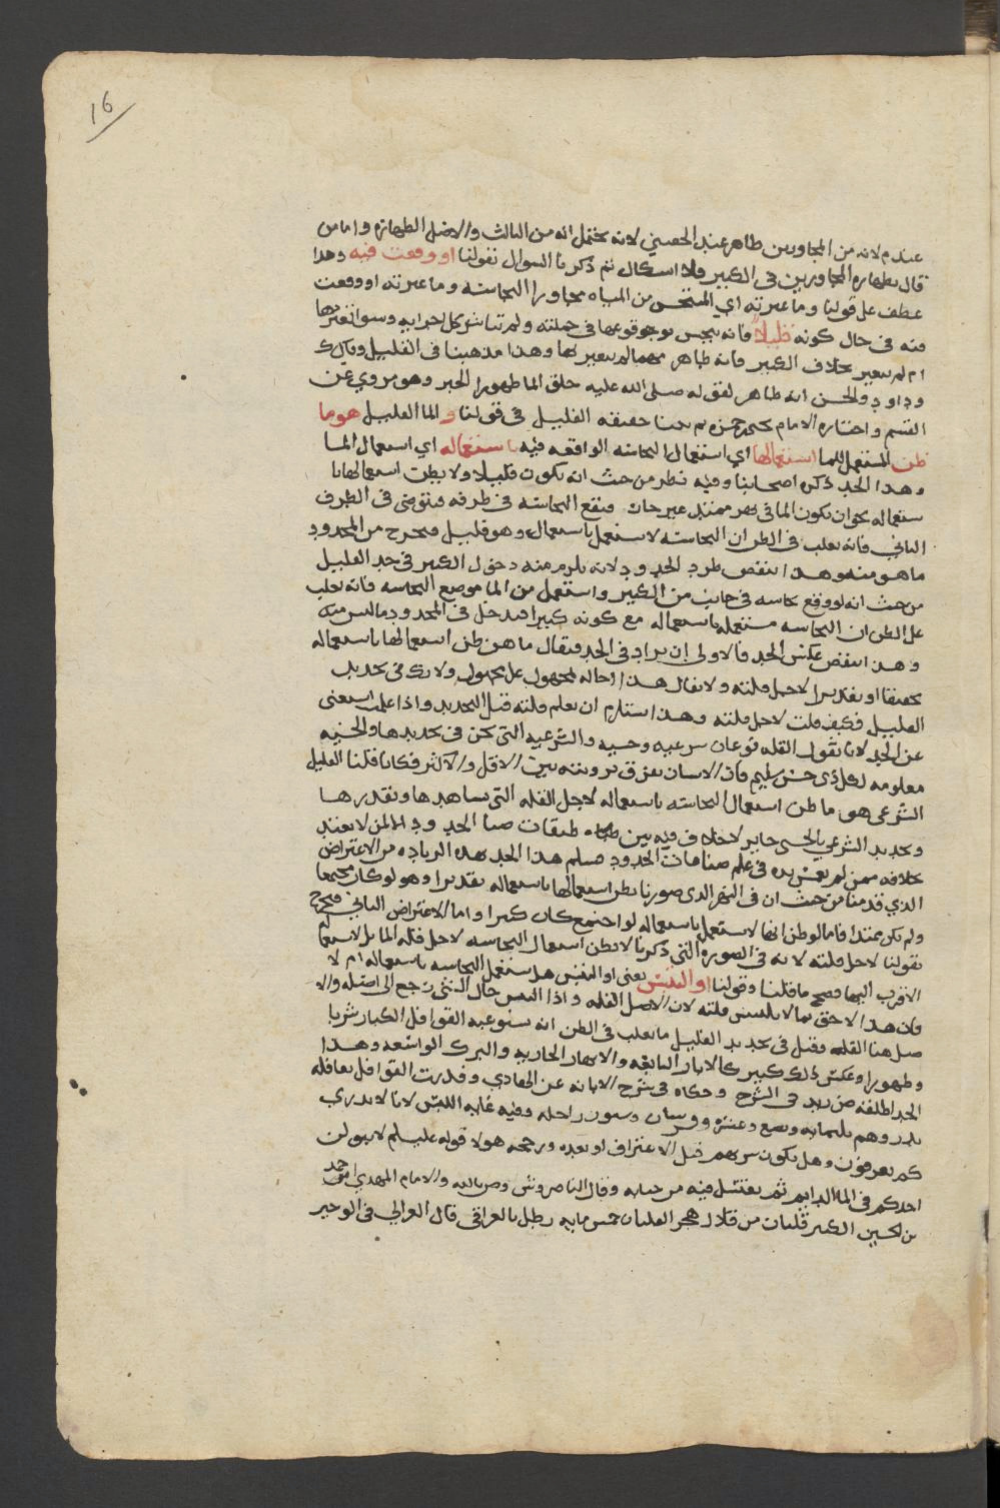 16
عندهم لانه من المجاورين طاهر عند الحقيني لانه يحتمل انه من الثالث والاصل الطهارة واما من
قال بطهارة المجاورين في الكبير فلا اشكال ثم ذكرنا السؤال بقولنا او وقعت فيه وهذا
عطف على قولنا وما غيرته اي المتنجس من المياه مجاورا النجاسة وما غيرته او وقعت
فيه في حال كونه قليلا فانه ينجس بوقوعها في جملته ولو لم تباشر كل اجزائه وسوا تغير بها
ام لم يتغير بخلاف الكثير فانه طاهر مهما لم يتغير بها وهذا مذهبنا في القليل وقال ك
ود اود والحسن انه طاهر لقوله صلى الله عليه خلق الما طهورا الخبر وهو مروي عن
القسم واختاره الامام يحيى بن حمزه ثم بينا حقيقة القليل في قولنا و الما القليل هو ما
ظن المستعمل للما استعمالها اي استعمال النجاسة الواقعة فيه باستعماله اي استعمال الما
وهذا الحد ذكره اصحابنا وفيه نظر من حيث انه يكون قليلا ولا يظن استعمالها با
ستعماله نحو ان يكون الما في نهر ممتد غير جار فتقع النجاسة في طرفه فيتوضى في الطرف
الثاني فانه يغلب في الظن ان النجاسة لا تستعمل باستعماله وهو قليل فيخرج من المحدود
ما هو منه وهذا ينقض طرد الحدود لانه يلزم منه دخول الكثير في حد القليل
من حيث انه لو وقع نجاسة في جانب من الكثير واستعمل من الما موضع النجاسة فانه يغلب
على الظن ان النجاسة مستعملة باستعماله مع كونه كثيرا فيدخل في المحدود ما ليس منه
وهذا ينقض عكس الحد فالاولى ان يزاد في الحد فيقال ما ظن استعمالها باستعماله
تحقيقا او تقديرا لاجل قلته ولا يقال هذا احالة لمجهول على مجهول ولانك في تحديد
القليل فكيف قلت لاجل قلته وهذا يستلزم ان يعلم قلته قبل التحديد واذا علمت استغنى
عن الحد لانا نقول القلة نوعان شرعية وحسية والشرعية التي نحن في تحديدها والحسية
معلومة لكل ذي حس سليم فان الانسان يفرق بروينته بين الاقل والاكثر فكانا قلنا القليل
الشرعي هو ما ظن استعمال النجاسة باستعماله لاجل القلة التي نشاهدها ونقدرها
وتحديد الشرعي بالحسي جايز لا خلاف فيه بين طبقات صنا الحدود الا لمن لا يعتد
بخلافه ممن لم يغمس يده في علم صناعات الحدود فيسلم هذا الحد بهذه الزيادة من الاعتراض
الذي قدمنا من حيث ان في النهر الذي صورنا يظن استعمالها باستعماله تقديرا وهو لو كان مجتمعا
ولم يكن ممتدا فاما لو ظن انها لا تستعمل باستعماله لو اجتمع كان كثيرا واما الاعتراض الثاني فيخرج
بقولنا لاجل قلته لانه في الصورة التي ذكرنا لا يظن استعمال النجاسة لاجل قلة الما بل لاستعماله
الاقرب اليها فصح ما قلنا وقولنا او التبس يعني او التبس هل تستعمل النجاسة باستعماله ام لا
فان هذا لاحق بما لا يلتبس قلته لان الاصل القلة واذا التبس حال الشي رجع الى اصله والا
صل هنا القلة وقيل في تحديد القليل ما يغلب في الظن انه ستوعبه القوافل الكبار شربا
وطهورا وعكس ذلك كثير كالابار النابعة والانهار الجارية والبرك الواسعة وهذا
الحد اطلقه ض زيد في الشرح وحكاه في شرح الابانه عن الهادي وقدرت القوافل بقافلة
بدر وهم ثلثمايه وتسع وعشرة وفرسان وسبعون راحلة وفيه غاية اللبس لانا لا ندري
كم يغرفون وهل يكون شربهم قبل الاغتراف او بعده ورجحه هولا قوله عليلم لا يبولن
احدكم في الما الدايم ثم يغتسل فيه من جنابه وقال الناصر وش وص بالله والامام المهدي احمد
بن الحسين الكثير قلتان من قلال هجر القلتان خمس مايه رطل بالعراقي قال الغزالي في الوجيز